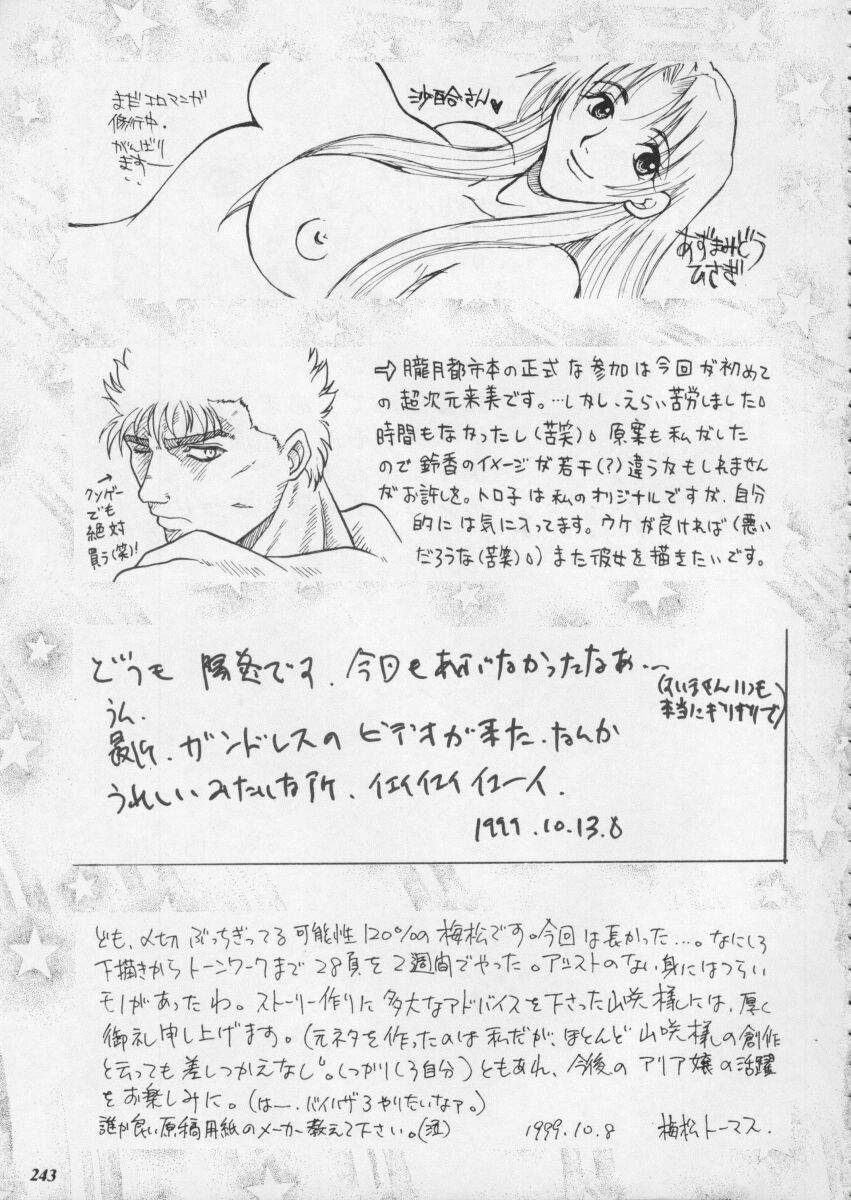 まだエロマンガ
修行中.
がんばり
ますー
沙百合さん♥
あずまみどう
ひさぎ
⇨朧月都市本の正式な参加は今回が初めて
の超次元来美です。…しかし、えらい苦労しました。
時間もなかったし(苦笑)。原案も私がした
ので鈴香のイメージが若干(?)違うかもしれません
がお許しを。トロ子は私のオリジナルですが、自分
的には気に入ってます。ウケが良ければ(悪い
だろうな(苦笑)。)また彼女を描きたいです。
クソゲー
でも
絶対
買う(笑)!
どうも 陽炎です. 今回もあぶなかったなぁ…
(すいませんいつも
本当にギリギリで)
うん.
最近.ガンドレスのビデオが来た.なんか
うれしいみたいな所.イエイイエイイエーイ.
1999.10.13.8
ども、〆切ぶっちぎってる可能性120%の梅松です。今回は長かった…。なにしろ
下描きからトーンワークまで28頁を2週間でやった。アシストのない身にはつらい
モノがあったわ。ストーリー作りに多大なアドバイスを下さった山咲様には、厚く
御礼申し上げます。(元ネタを作ったのは私だが、ほとんど山咲様の創作
と云っても差しつかえなし。しっかりしろ自分)ともあれ、今後のアリア嬢の活躍
をお楽しみに。(はー、バイハザ3やりたいなァ。)
誰か良い原稿用紙のメーカー教えて下さい。(泣) 1999.10.8 梅松トーマス.
243